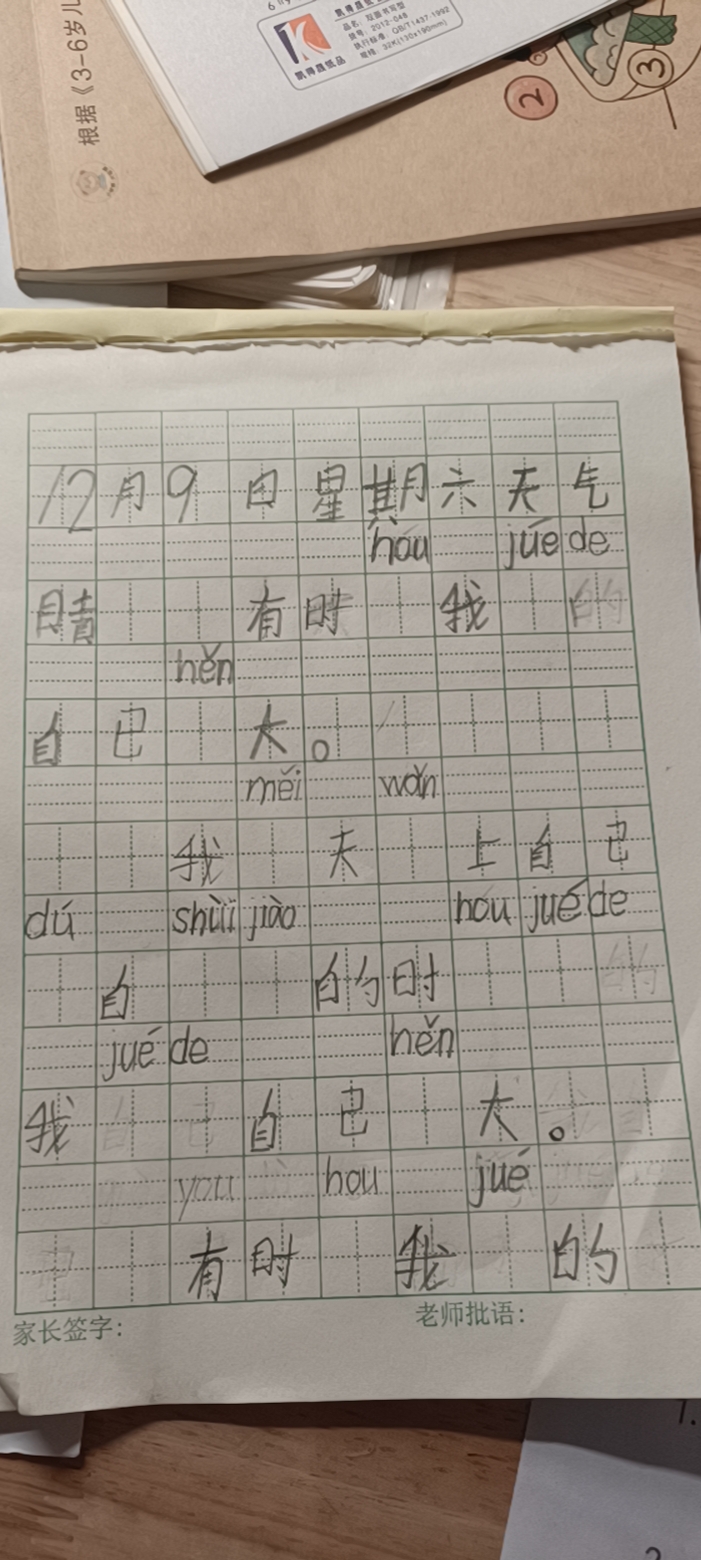 根据《3-6岁儿
凯得晟纸品
品名：双面书写型
货号：2012-048
执行标准：QB/T1437-1992
规格：32K(130x190mm)
2
3
12月9日星期六天气
hóu juéde
晴 有时 我
hěn
自己 大。
měi wǎn
我 天 上自己
dú shùijiào hóu juéde
自 的时
juéde hěn
我 自己 大。
you hou jué
有时 我 的
家长签字：
老师批语：